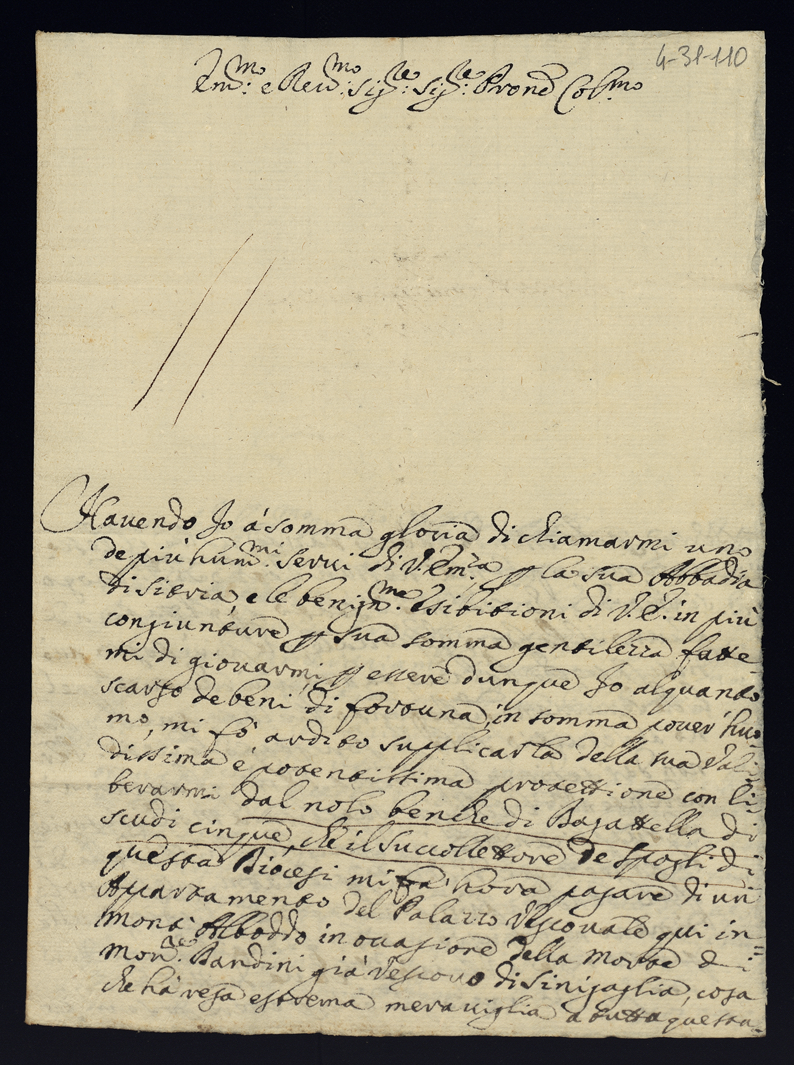 4-31-110
Em.mo e Reu.mo Sig.re Sig.re Prone Col.mo
Hauendo Io à somma gloria di chiamarmi uno
de più hum.mi serui di V. Em.za p la sua Abbadia
di Sitria, e le benign.me esibitioni di V. E. in più
congiunture p sua somma gentilezza fatte-
mi di giouarmi, p essere dunque Io alquanto
scarso de beni di fortuna, in somma pouer' huo-
mo, mi fò ardito supplicarla della sua Vali-
dissima è potentissima protettione con li-
berarmi dal nolo benche di Bagattella di
scudi cinque, che il Succollettore de Spogli di
questa Diocesi mi fà hora pagare di un
Apartamento del Palazzo Vescouale qui in
Mont' Alboddo in ocasione della Morte di
Mon.re Bandini già Vescouo di Sinigaglia, cosa
che hà resa estrema merauiglia a tutta questa